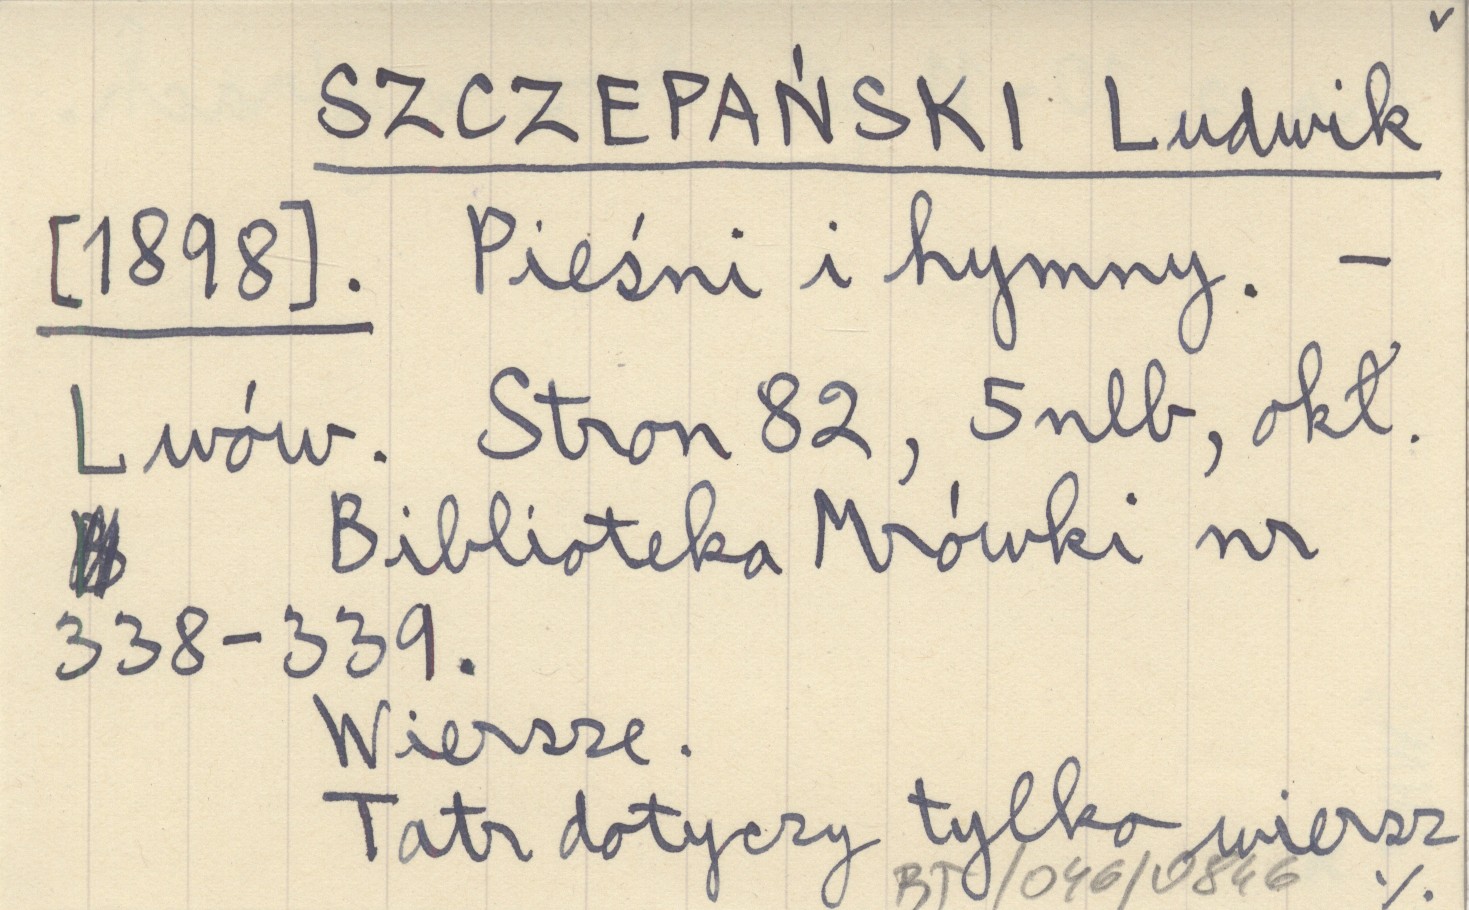 v
SZCZEPAŃSKI Ludwik
[1898]. Pieśni i hymny. –
Lwów. Stron 82, 5 nlb, okł.
Biblioteka Mrówki nr
338-339.
Wiersze.
Tatr dotyczy tylko wiersz
BT/046/0846
./.